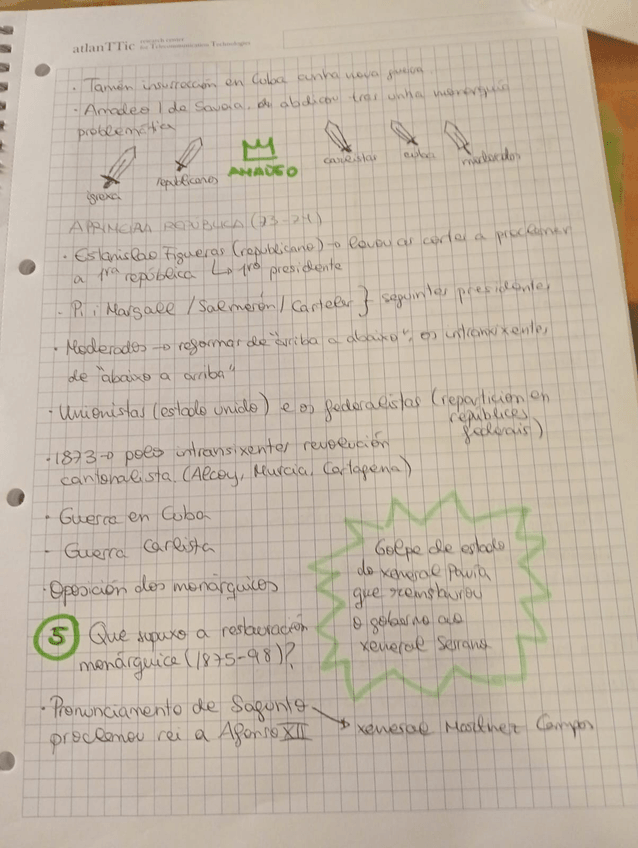 atlanTTic research center for Telecommunication Technologies
· Tamén insurrección en Cuba cunha nova
· Amadeo I de Savoia, abdicou tras unha monarquía
problemática
igrexa
republicanos
AMADEO
carlistas
cuba
moderados
A PRIMEIRA REPÚBLICA (73-74)
· Estanislao Figueras (republicano) → levou as cortes a proclamar
a 1ra república ↳ 1ro presidente
· Pi i Margall / Salmerón / Castelar } seguintes presidentes
· Moderados → reformas de "arriba a abaixo", os intransixentes
de "abaixo a arriba"
· Unionistas (estado unido) e os federalistas (repartición en
repúblicas
federais)
· 1873 → polos intransixentes revolución
cantonalista. (Alcoy, Murcia, Cartagena)
· Guerra en Cuba
- Guerra Carlista
· Oposición dos monárquicos
Golpe de estado
do xeneral Pavía
que reinstaurou
o goberno do
xeneral Serrano
5 Que supuxo a restauración
monárquica (1875-98)?
· Pronunciamento de Sagunto
proclamou rei a Afonso XII
→ xeneral Martínez Campos